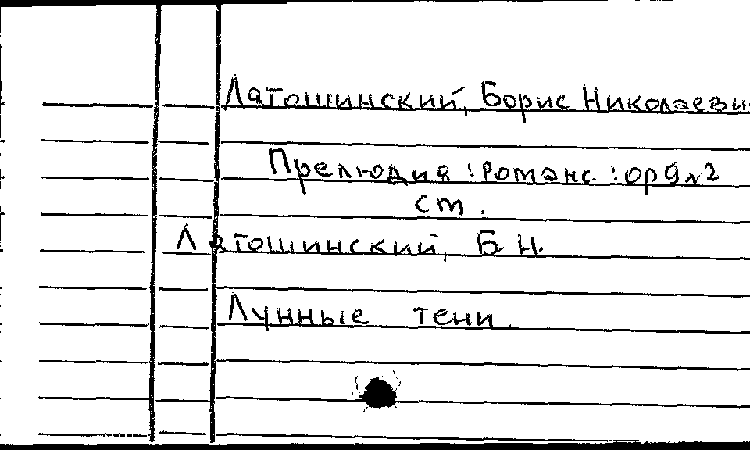 Латошинский, Борис Николаеви
Прелюдия : романс : ор 9 №2
ст.
Латошинский, Б. Н.
Лунные тени.